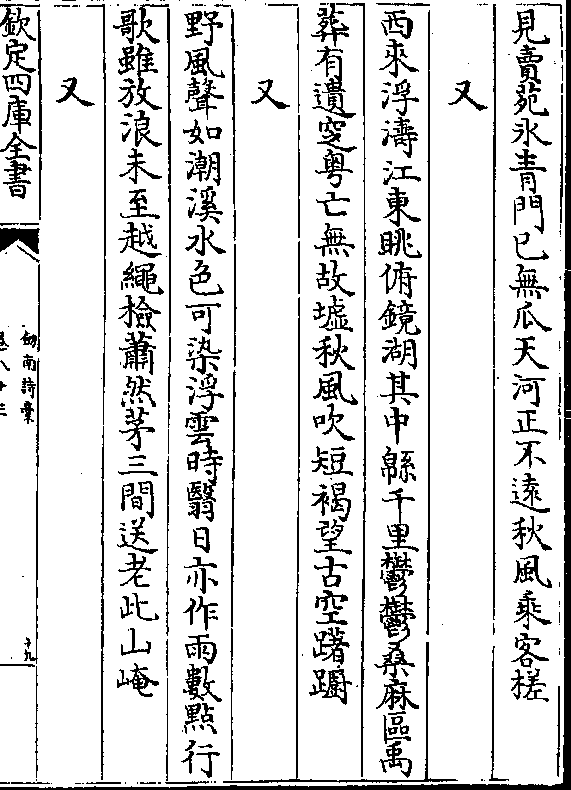 見賣苑氷青門已無瓜天河正不遠秋風乘客槎
又
西來浮濤江東眺俯鏡湖其中緜千里鬱鬱桑麻區禹
葬有遺穸粤亡無故墟秋風吹短褐望古空躇躕
又
野風聲如潮溪水色可染浮雲時翳日亦作雨數點行
歌雖放浪未至越繩檢蕭然茅三間送老此山崦
又
欽定四庫全書
劒南詩稾
卷八十三
十九